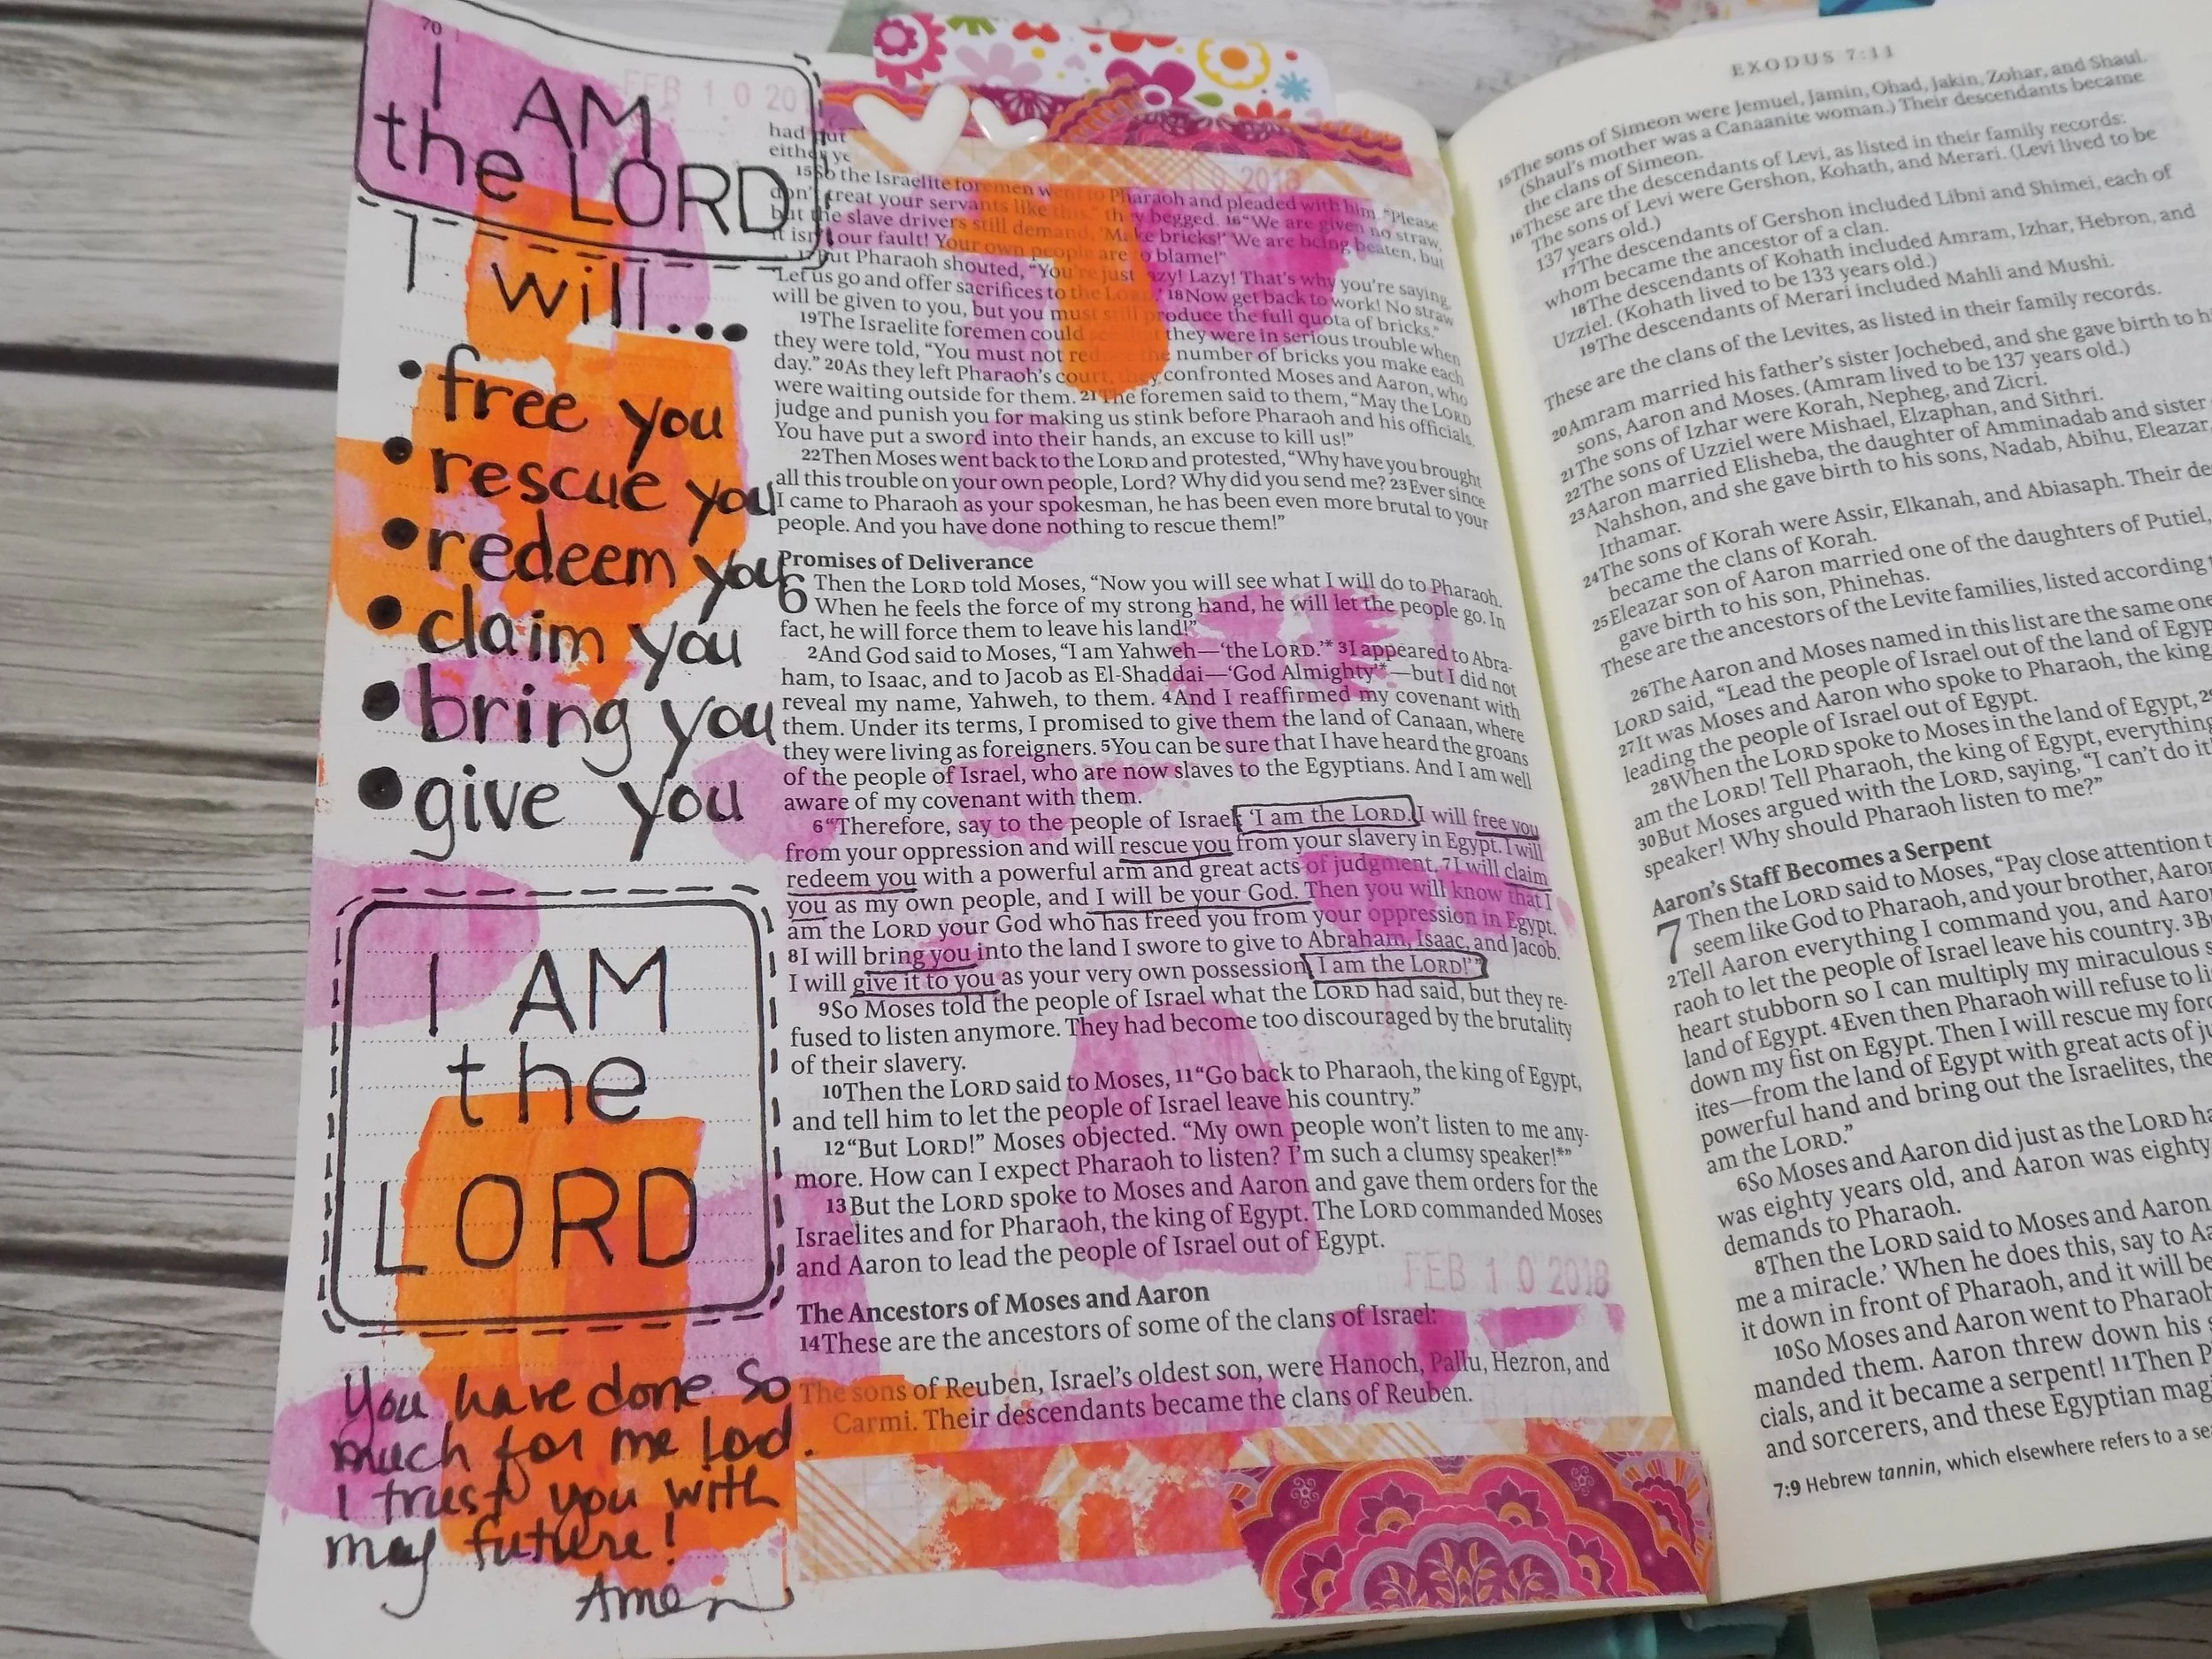 70
I AM
the LORD
I will...
• free you
• rescue you
• redeem you
• claim you
• bring you
• give you
I AM
the
LORD
You have done so
much for me Lord.
I trust you with
my future!
Amen
FEB 1 0 20
2018
had put
either
15So the Israelite foremen went to Pharaoh and pleaded with him. “Please
don’t treat your servants like this,” they begged. 16“We are given no straw,
but the slave drivers still demand, ‘Make bricks!’ We are being beaten, but
it isn’t our fault! Your own people are to blame!”
17But Pharaoh shouted, “You’re just lazy! Lazy! That’s why you’re saying,
‘Let us go and offer sacrifices to the LORD.’ 18Now get back to work! No straw
will be given to you, but you must still produce the full quota of bricks.”
19The Israelite foremen could see that they were in serious trouble when
they were told, “You must not reduce the number of bricks you make each
day.” 20As they left Pharaoh’s court, they confronted Moses and Aaron, who
were waiting outside for them. 21The foremen said to them, “May the LORD
judge and punish you for making us stink before Pharaoh and his officials.
You have put a sword into their hands, an excuse to kill us!”
22Then Moses went back to the LORD and protested, “Why have you brought
all this trouble on your own people, Lord? Why did you send me? 23Ever since
I came to Pharaoh as your spokesman, he has been even more brutal to your
people. And you have done nothing to rescue them!”
Promises of Deliverance
6 Then the LORD told Moses, “Now you will see what I will do to Pharaoh.
When he feels the force of my strong hand, he will let the people go. In
fact, he will force them to leave his land!”
2And God said to Moses, “I am Yahweh—‘the LORD.’* 3I appeared to Abra-
ham, to Isaac, and to Jacob as El-Shaddai—‘God Almighty’*—but I did not
reveal my name, Yahweh, to them. 4And I reaffirmed my covenant with
them. Under its terms, I promised to give them the land of Canaan, where
they were living as foreigners. 5You can be sure that I have heard the groans
of the people of Israel, who are now slaves to the Egyptians. And I am well
aware of my covenant with them.
6“Therefore, say to the people of Israel: ‘I am the LORD. I will free you
from your oppression and will rescue you from your slavery in Egypt. I will
redeem you with a powerful arm and great acts of judgment. 7I will claim
you as my own people, and I will be your God. Then you will know that I
am the LORD your God who has freed you from your oppression in Egypt.
8I will bring you into the land I swore to give to Abraham, Isaac, and Jacob.
I will give it to you as your very own possession. I am the LORD!’”
9So Moses told the people of Israel what the LORD had said, but they re-
fused to listen anymore. They had become too discouraged by the brutality
of their slavery.
10Then the LORD said to Moses, 11“Go back to Pharaoh, the king of Egypt,
and tell him to let the people of Israel leave his country.”
12“But LORD!” Moses objected. “My own people won’t listen to me any-
more. How can I expect Pharaoh to listen? I’m such a clumsy speaker!*”
13But the LORD spoke to Moses and Aaron and gave them orders for the
Israelites and for Pharaoh, the king of Egypt. The LORD commanded Moses
and Aaron to lead the people of Israel out of Egypt.
FEB 1 0 2018
The Ancestors of Moses and Aaron
14These are the ancestors of some of the clans of Israel:
The sons of Reuben, Israel’s oldest son, were Hanoch, Pallu, Hezron, and
Carmi. Their descendants became the clans of Reuben.
EXODUS 7:11
15The sons of Simeon were Jemuel, Jamin, Ohad, Jakin, Zohar, and Shaul.
(Shaul’s mother was a Canaanite woman.) Their descendants became
the clans of Simeon.
16These are the descendants of Levi, as listed in their family records:
The sons of Levi were Gershon, Kohath, and Merari. (Levi lived to be
137 years old.)
17The descendants of Gershon included Libni and Shimei, each of
whom became the ancestor of a clan.
18The descendants of Kohath included Amram, Izhar, Hebron, and
Uzziel. (Kohath lived to be 133 years old.)
19The descendants of Merari included Mahli and Mushi.
These are the clans of the Levites, as listed in their family records.
20Amram married his father’s sister Jochebed, and she gave birth to
sons, Aaron and Moses. (Amram lived to be 137 years old.)
21The sons of Izhar were Korah, Nepheg, and Zicri.
22The sons of Uzziel were Mishael, Elzaphan, and Sithri.
23Aaron married Elisheba, the daughter of Amminadab and sister
Nahshon, and she gave birth to his sons, Nadab, Abihu, Eleazar,
Ithamar.
24The sons of Korah were Assir, Elkanah, and Abiasaph. Their de
became the clans of Korah.
25Eleazar son of Aaron married one of the daughters of Putiel,
gave birth to his son, Phinehas.
These are the ancestors of the Levite families, listed according
26The Aaron and Moses named in this list are the same one
LORD said, “Lead the people of Israel out of the land of Egyp
27It was Moses and Aaron who spoke to Pharaoh, the king
leading the people of Israel out of Egypt.
28When the LORD spoke to Moses in the land of Egypt,
am the LORD! Tell Pharaoh, the king of Egypt, everything
30But Moses argued with the LORD, saying, “I can’t do it
speaker! Why should Pharaoh listen to me?”
Aaron’s Staff Becomes a Serpent
7 Then the LORD said to Moses, “Pay close attention t
seem like God to Pharaoh, and your brother, Aaro
2Tell Aaron everything I command you, and Aaron
raoh to let the people of Israel leave his country. 3B
heart stubborn so I can multiply my miraculous s
land of Egypt. 4Even then Pharaoh will refuse to li
down my fist on Egypt. Then I will rescue my forc
ites—from the land of Egypt with great acts of ju
powerful hand and bring out the Israelites, the
am the LORD.”
6So Moses and Aaron did just as the LORD ha
was eighty years old, and Aaron was eighty
demands to Pharaoh.
8Then the LORD said to Moses and Aaron
me a miracle.’ When he does this, say to Aa
it down in front of Pharaoh, and it will be
10So Moses and Aaron went to Pharaoh
manded them. Aaron threw down his s
cials, and it became a serpent! 11Then P
and sorcerers, and these Egyptian magi
7:9 Hebrew tannin, which elsewhere refers to a se